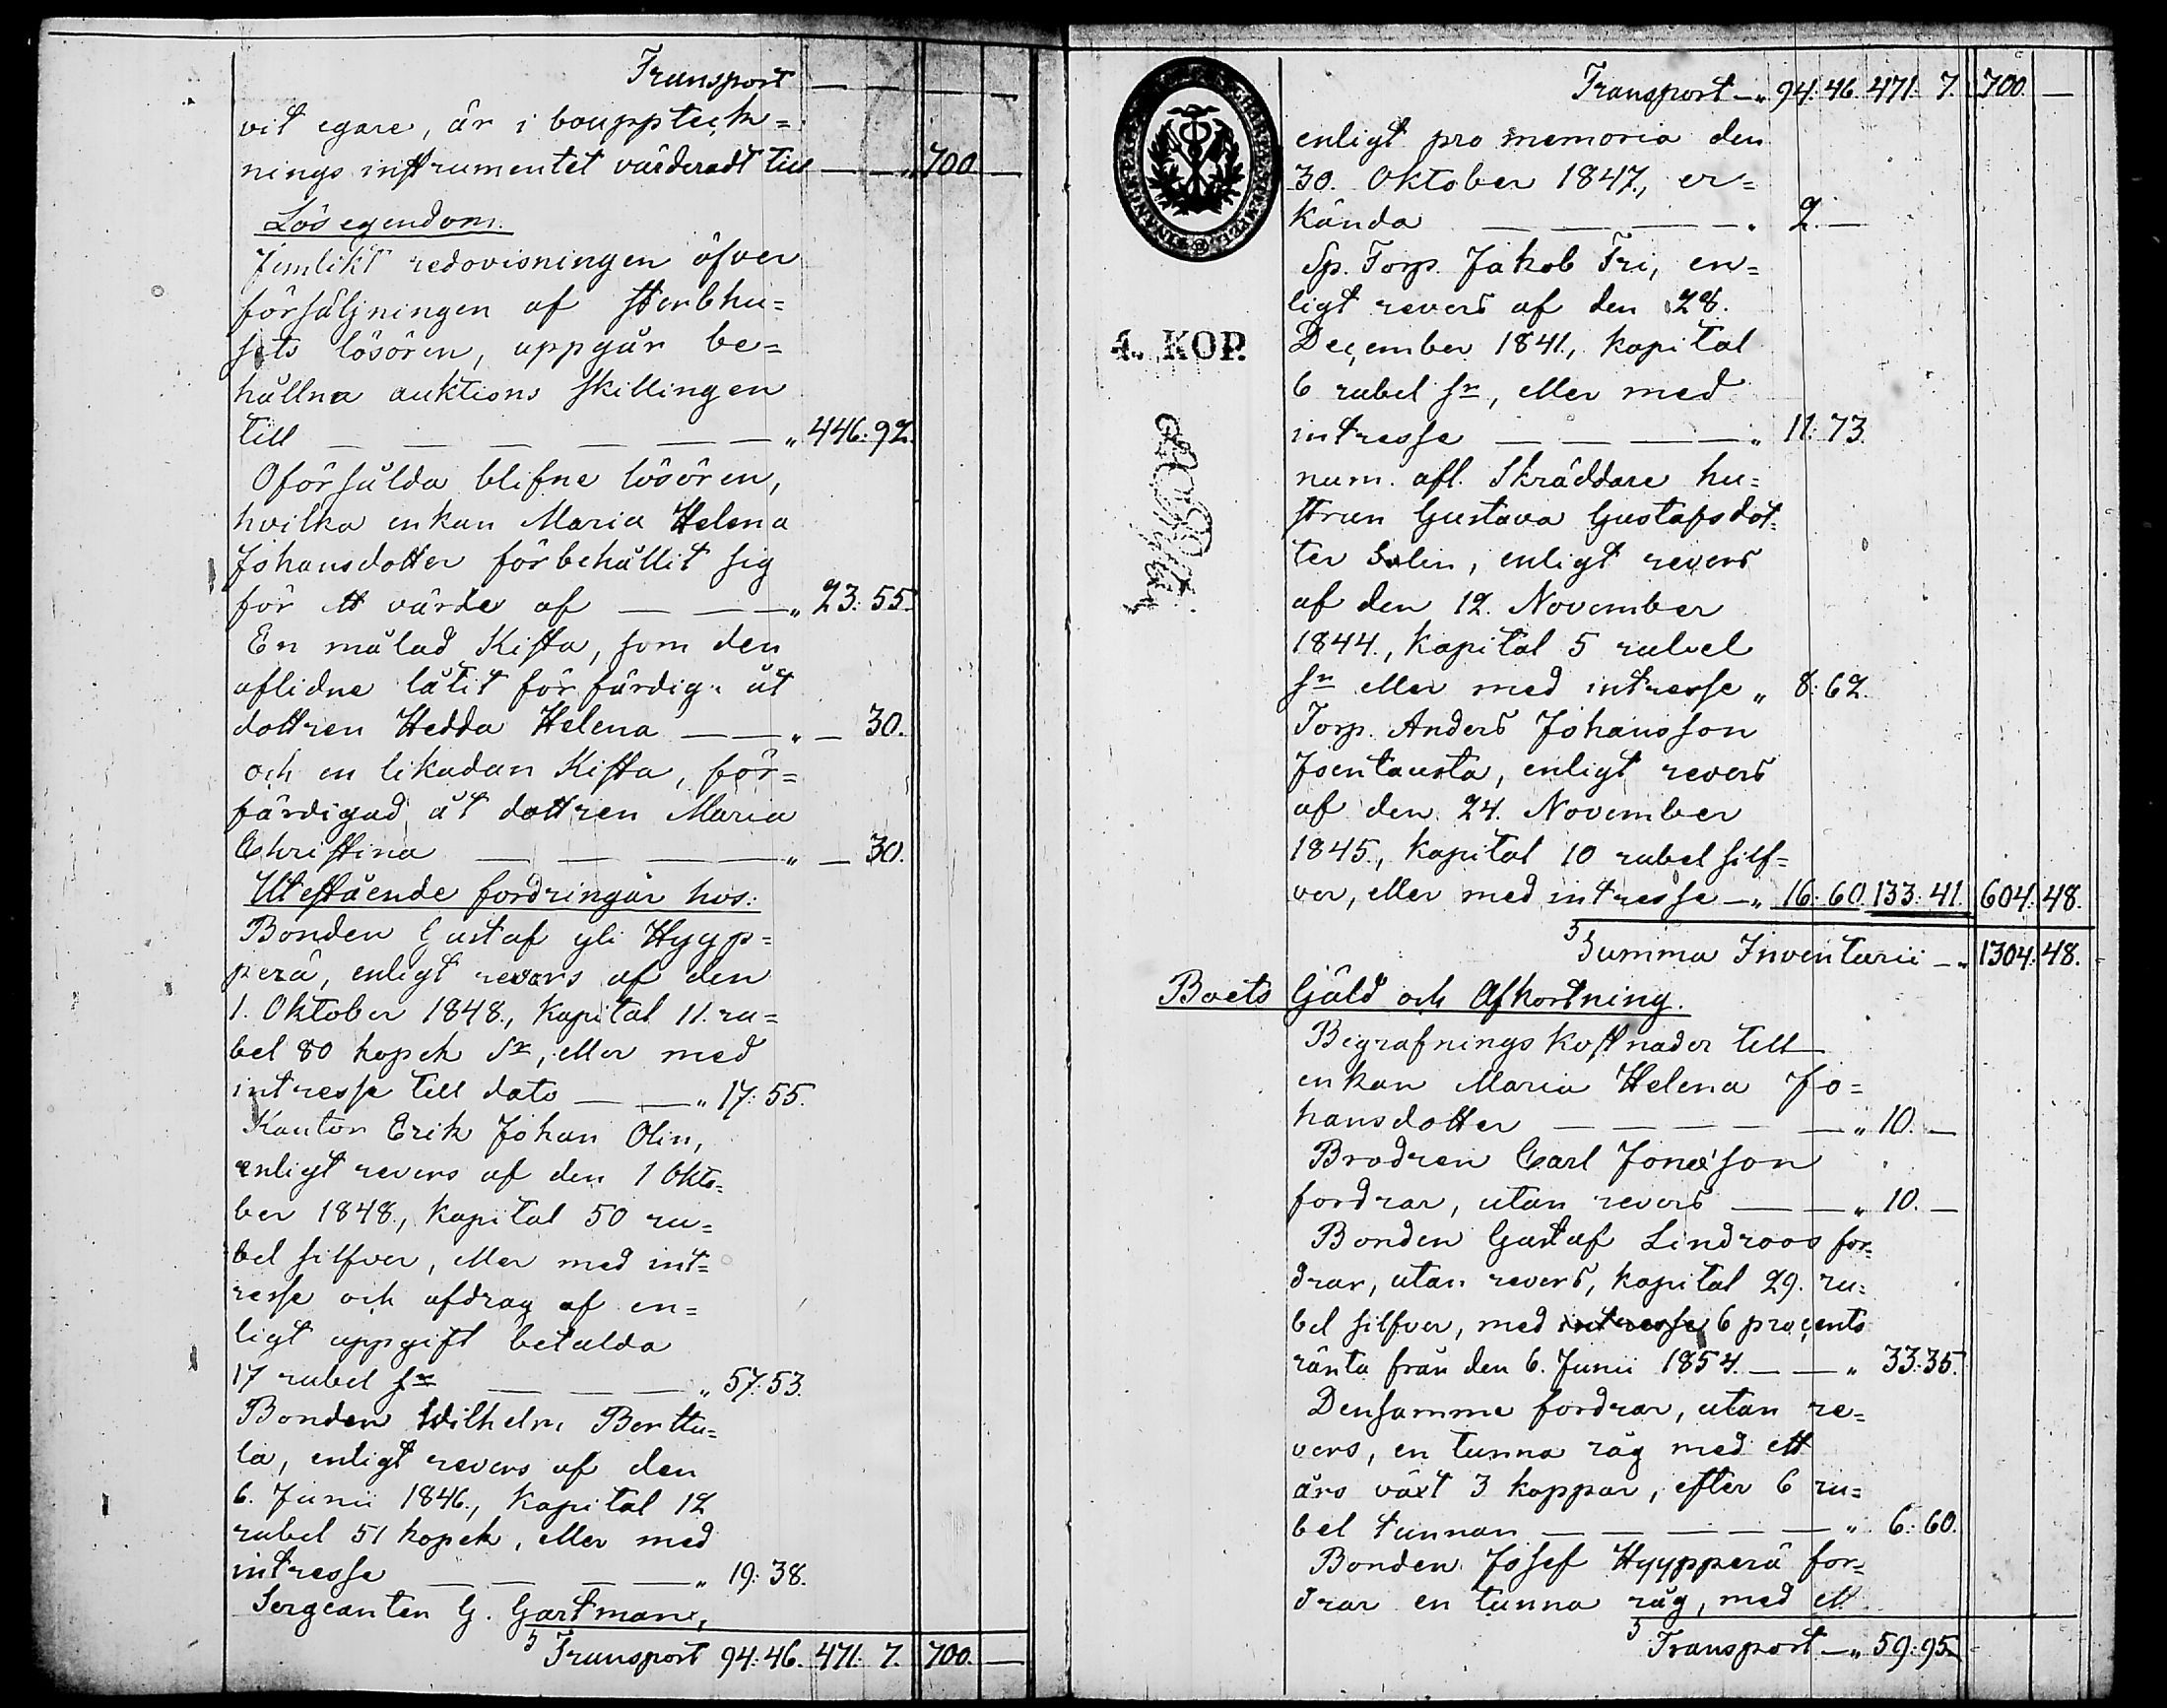 Transport — — —
vit egare, är i bouppteck=
nings instrumentet värderadt till — — " 700 —
Lös egendom.
Jemlikt redovisningen öfver
försäljningen af sterbhu=
sets lösören, uppgår be=
hållna auktions skillingen
till — — — — — — " 446: 92.
Oförsålda blifne lösören,
hvilka enkan Maria Helena
Johansdotter förbehållit sig
för ett värde af — — — " 23: 55.
En målad Kista, som den
aflidne låtit förfärdiga åt
dottren Hedda Helena — — " — 30.
och en likadan Kista, för=
färdigad åt dottren Maria
Christina — — — — " — 30.
Utestående fordringar hos:
Bonden Gustaf yli Hyyp=
perä, enligt revers af den
1. Oktober 1848., Kapital 11. ru=
bel 80 kopek Sr, eller med
intresse till dato — — " 17: 55.
Kantor Erik Johan Olin,
enligt revers af den 1 Okto=
ber 1848., Kapital 50 ru=
bel silfver, eller med int=
resse och afdrag af en=
ligt uppgift betalda
17 rubel sr — — — " 57: 53.
Bonden Wilhelm Berttu=
la, enligt revers af den
6. Junii 1846., Kapital 12
rubel 51 kopek, eller med
intresse — — — — " 19: 38.
Sergeanten G. Gartman,
5 Transport 94: 46. 471: 7. 700. —
Transport — " 94: 46. 471: 7. 700. —
enligt pro memoria den
30. Oktober 1847., er=
kända — — — — " 2. —
Sp. Torp. Jakob Fri, en=
ligt revers af den 28.
4. KOP.
December 1841., kapital
6 rubel sr, eller med
intresse — — — — " 11: 73.
num. afl. Skräddare hu=
strun Gustava Gustafsdot=
ter Salin, enligt revers
af den 12. November
1844., Kapital 5 rubel
sr eller med intresse " 8: 62.
Torp. Anders Johansson
Joentausta, enligt revers
af den 24. November
1845., Kapital 10 rubel silf=
ver, eller med intresse — " 16: 60. 133: 41. 604: 48.
5 Summa Inventarii — " 1304: 48.
Boets Gäld och Afkortning.
Begrafnings kostnader till
enkan Maria Helena Jo=
hansdotter — — — — — " 10. —
Brodren Carl Jonasson
fordrar, utan revers — — " 10. —
Bonden Gustaf Lindroos for=
drar, utan revers, kapital 29. ru=
bel silfver, med intresse 6 procents
ränta från den 6. Junii 1854. — — " 33: 35.
Densamme fordrar, utan re=
vers, en tunna råg med ett
års växt 3 kappar, efter 6 ru=
bel tunnan — — — — — " 6: 60.
Bonden Josef Hyypperä for=
drar en tunna råg, med ett
5 Transport — " 59: 95.